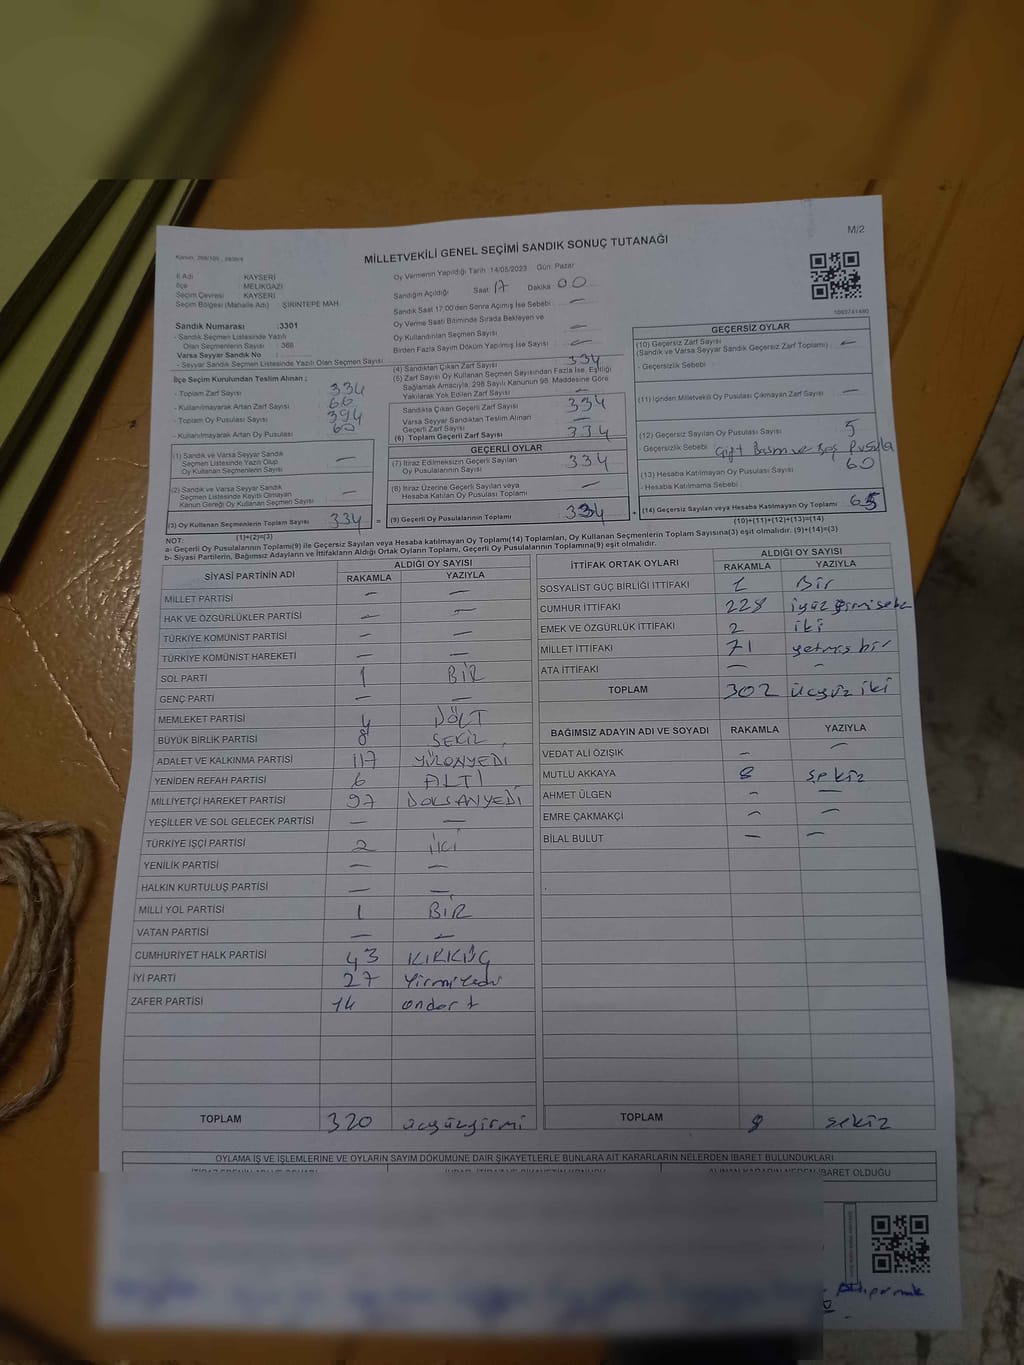 M/2
Kanun: 298/105 , 2839/4
MİLLETVEKİLİ GENEL SEÇİMİ SANDIK SONUÇ TUTANAĞI
İl Adı : KAYSERİ
İlçe : MELİKGAZİ
Seçim Çevresi : KAYSERİ
Seçim Bölgesi (Mahalle Adı) : ŞİRİNTEPE MAH.
Sandık Numarası :3301
- Sandık Seçmen Listesinde Yazılı
Olan Seçmenlerin Sayısı : 368
Varsa Seyyar Sandık No :
- Seyyar Sandık Seçmen Listesinde Yazılı Olan Seçmen Sayısı :
Oy Vermenin Yapıldığı Tarih :14/05/2023 Gün: Pazar
Sandığın Açıldığı Saat: 17 Dakika: 00
Sandık Saat 17:00'den Sonra Açılmış İse Sebebi : —
Oy Verme Saati Bitiminde Sırada Bekleyen ve
Oy Kullandırılan Seçmen Sayısı —
Birden Fazla Sayım Döküm Yapılmış İse Sayısı —
1060741490
İlçe Seçim Kurulundan Teslim Alınan ;
- Toplam Zarf Sayısı 334
- Kullanılmayarak Artan Zarf Sayısı 66
- Toplam Oy Pusulası Sayısı 394
- Kullanılmayarak Artan Oy Pusulası 60
(1) Sandık ve Varsa Seyyar Sandık
Seçmen Listesinde Yazılı Olup
Oy Kullanan Seçmenlerin Sayısı —
(2) Sandık ve Varsa Seyyar Sandık
Seçmen Listesinde Kayıtlı Olmayan
Kanun Gereği Oy Kullanan Seçmen Sayısı —
(3) Oy Kullanan Seçmenlerin Toplam Sayısı 334 =
(1)+(2)=(3)
(4) Sandıktan Çıkan Zarf Sayısı 334
(5) Zarf Sayısı Oy Kullanan Seçmen Sayısından Fazla İse, Eşitliği
Sağlamak Amacıyla, 298 Sayılı Kanunun 98. Maddesine Göre
Yakılarak Yok Edilen Zarf Sayısı —
Sandıkta Çıkan Geçerli Zarf Sayısı 334
Varsa Seyyar Sandıktan Teslim Alınan
Geçerli Zarf Sayısı —
(6) Toplam Geçerli Zarf Sayısı 334
GEÇERLİ OYLAR
(7) İtiraz Edilmeksizin Geçerli Sayılan
Oy Pusulalarının Sayısı 334
(8) İtiraz Üzerine Geçerli Sayılan veya
Hesaba Katılan Oy Pusulası Toplamı —
(9) Geçerli Oy Pusulalarının Toplamı 334 +
GEÇERSİZ OYLAR
(10) Geçersiz Zarf Sayısı
(Sandık ve Varsa Seyyar Sandık Geçersiz Zarf Toplamı) : —
- Geçersizlik Sebebi :
(11) İçinden Milletvekili Oy Pusulası Çıkmayan Zarf Sayısı —
(12) Geçersiz Sayılan Oy Pusulası Sayısı 5
- Geçersizlik Sebebi : Çift Basım ve Boş Pusula
(13) Hesaba Katılmayan Oy Pusulası Sayısı 60
- Hesaba Katılmama Sebebi :
(14) Geçersiz Sayılan veya Hesaba Katılmayan Oy Toplamı 65
(10)+(11)+(12)+(13)=(14)
NOT:
a- Geçerli Oy Pusulalarının Toplamı(9) ile Geçersiz Sayılan veya Hesaba katılmayan Oy Toplamı(14) Toplamları, Oy Kullanan Seçmenlerin Toplam Sayısına(3) eşit olmalıdır. (9)+(14)=(3)
b- Siyasi Partilerin, Bağımsız Adayların ve İttifakların Aldığı Ortak Oyların Toplamı, Geçerli Oy Pusulalarının Toplamına(9) eşit olmalıdır.
SİYASİ PARTİNİN ADI ALDIĞI OY SAYISI
RAKAMLA YAZIYLA
MİLLET PARTİSİ — —
HAK VE ÖZGÜRLÜKLER PARTİSİ — —
TÜRKİYE KOMÜNİST PARTİSİ — —
TÜRKİYE KOMÜNİST HAREKETİ — —
SOL PARTİ 1 BİR
GENÇ PARTİ — —
MEMLEKET PARTİSİ 4 DÖLT
BÜYÜK BİRLİK PARTİSİ 8 SEKİZ
ADALET VE KALKINMA PARTİSİ 117 YÜZONYEDİ
YENİDEN REFAH PARTİSİ 6 ALTI
MİLLİYETÇİ HAREKET PARTİSİ 97 DOKSANYEDİ
YEŞİLLER VE SOL GELECEK PARTİSİ — —
TÜRKİYE İŞÇİ PARTİSİ 2 İKİ
YENİLİK PARTİSİ — —
HALKIN KURTULUŞ PARTİSİ — —
MİLLİ YOL PARTİSİ 1 BİR
VATAN PARTİSİ — —
CUMHURİYET HALK PARTİSİ 43 KIRKÜÇ
İYİ PARTİ 27 Yirmiyedi
ZAFER PARTİSİ 14 ondört
TOPLAM 320 üçyüzyirmi
İTTİFAK ORTAK OYLARI ALDIĞI OY SAYISI
RAKAMLA YAZIYLA
SOSYALİST GÜÇ BİRLİĞİ İTTİFAKI 1 Bir
CUMHUR İTTİFAKI 228 iyüz yirmisekz
EMEK VE ÖZGÜRLÜK İTTİFAKI 2 iki
MİLLET İTTİFAKI 71 yetmiş bir
ATA İTTİFAKI — —
TOPLAM 302 üçyüz iki
BAĞIMSIZ ADAYIN ADI VE SOYADI RAKAMLA YAZIYLA
VEDAT ALİ ÖZIŞIK — —
MUTLU AKKAYA 8 sekiz
AHMET ÜLGEN — —
EMRE ÇAKMAKÇI — —
BİLAL BULUT — —
TOPLAM 8 sekiz
OYLAMA İŞ VE İŞLEMLERİNE VE OYLARIN SAYIM DÖKÜMÜNE DAİR ŞİKAYETLERLE BUNLARA AİT KARARLARIN NELERDEN İBARET BULUNDUKLARI
ALINAN KARARIN NEDEN İBARET OLDUĞU